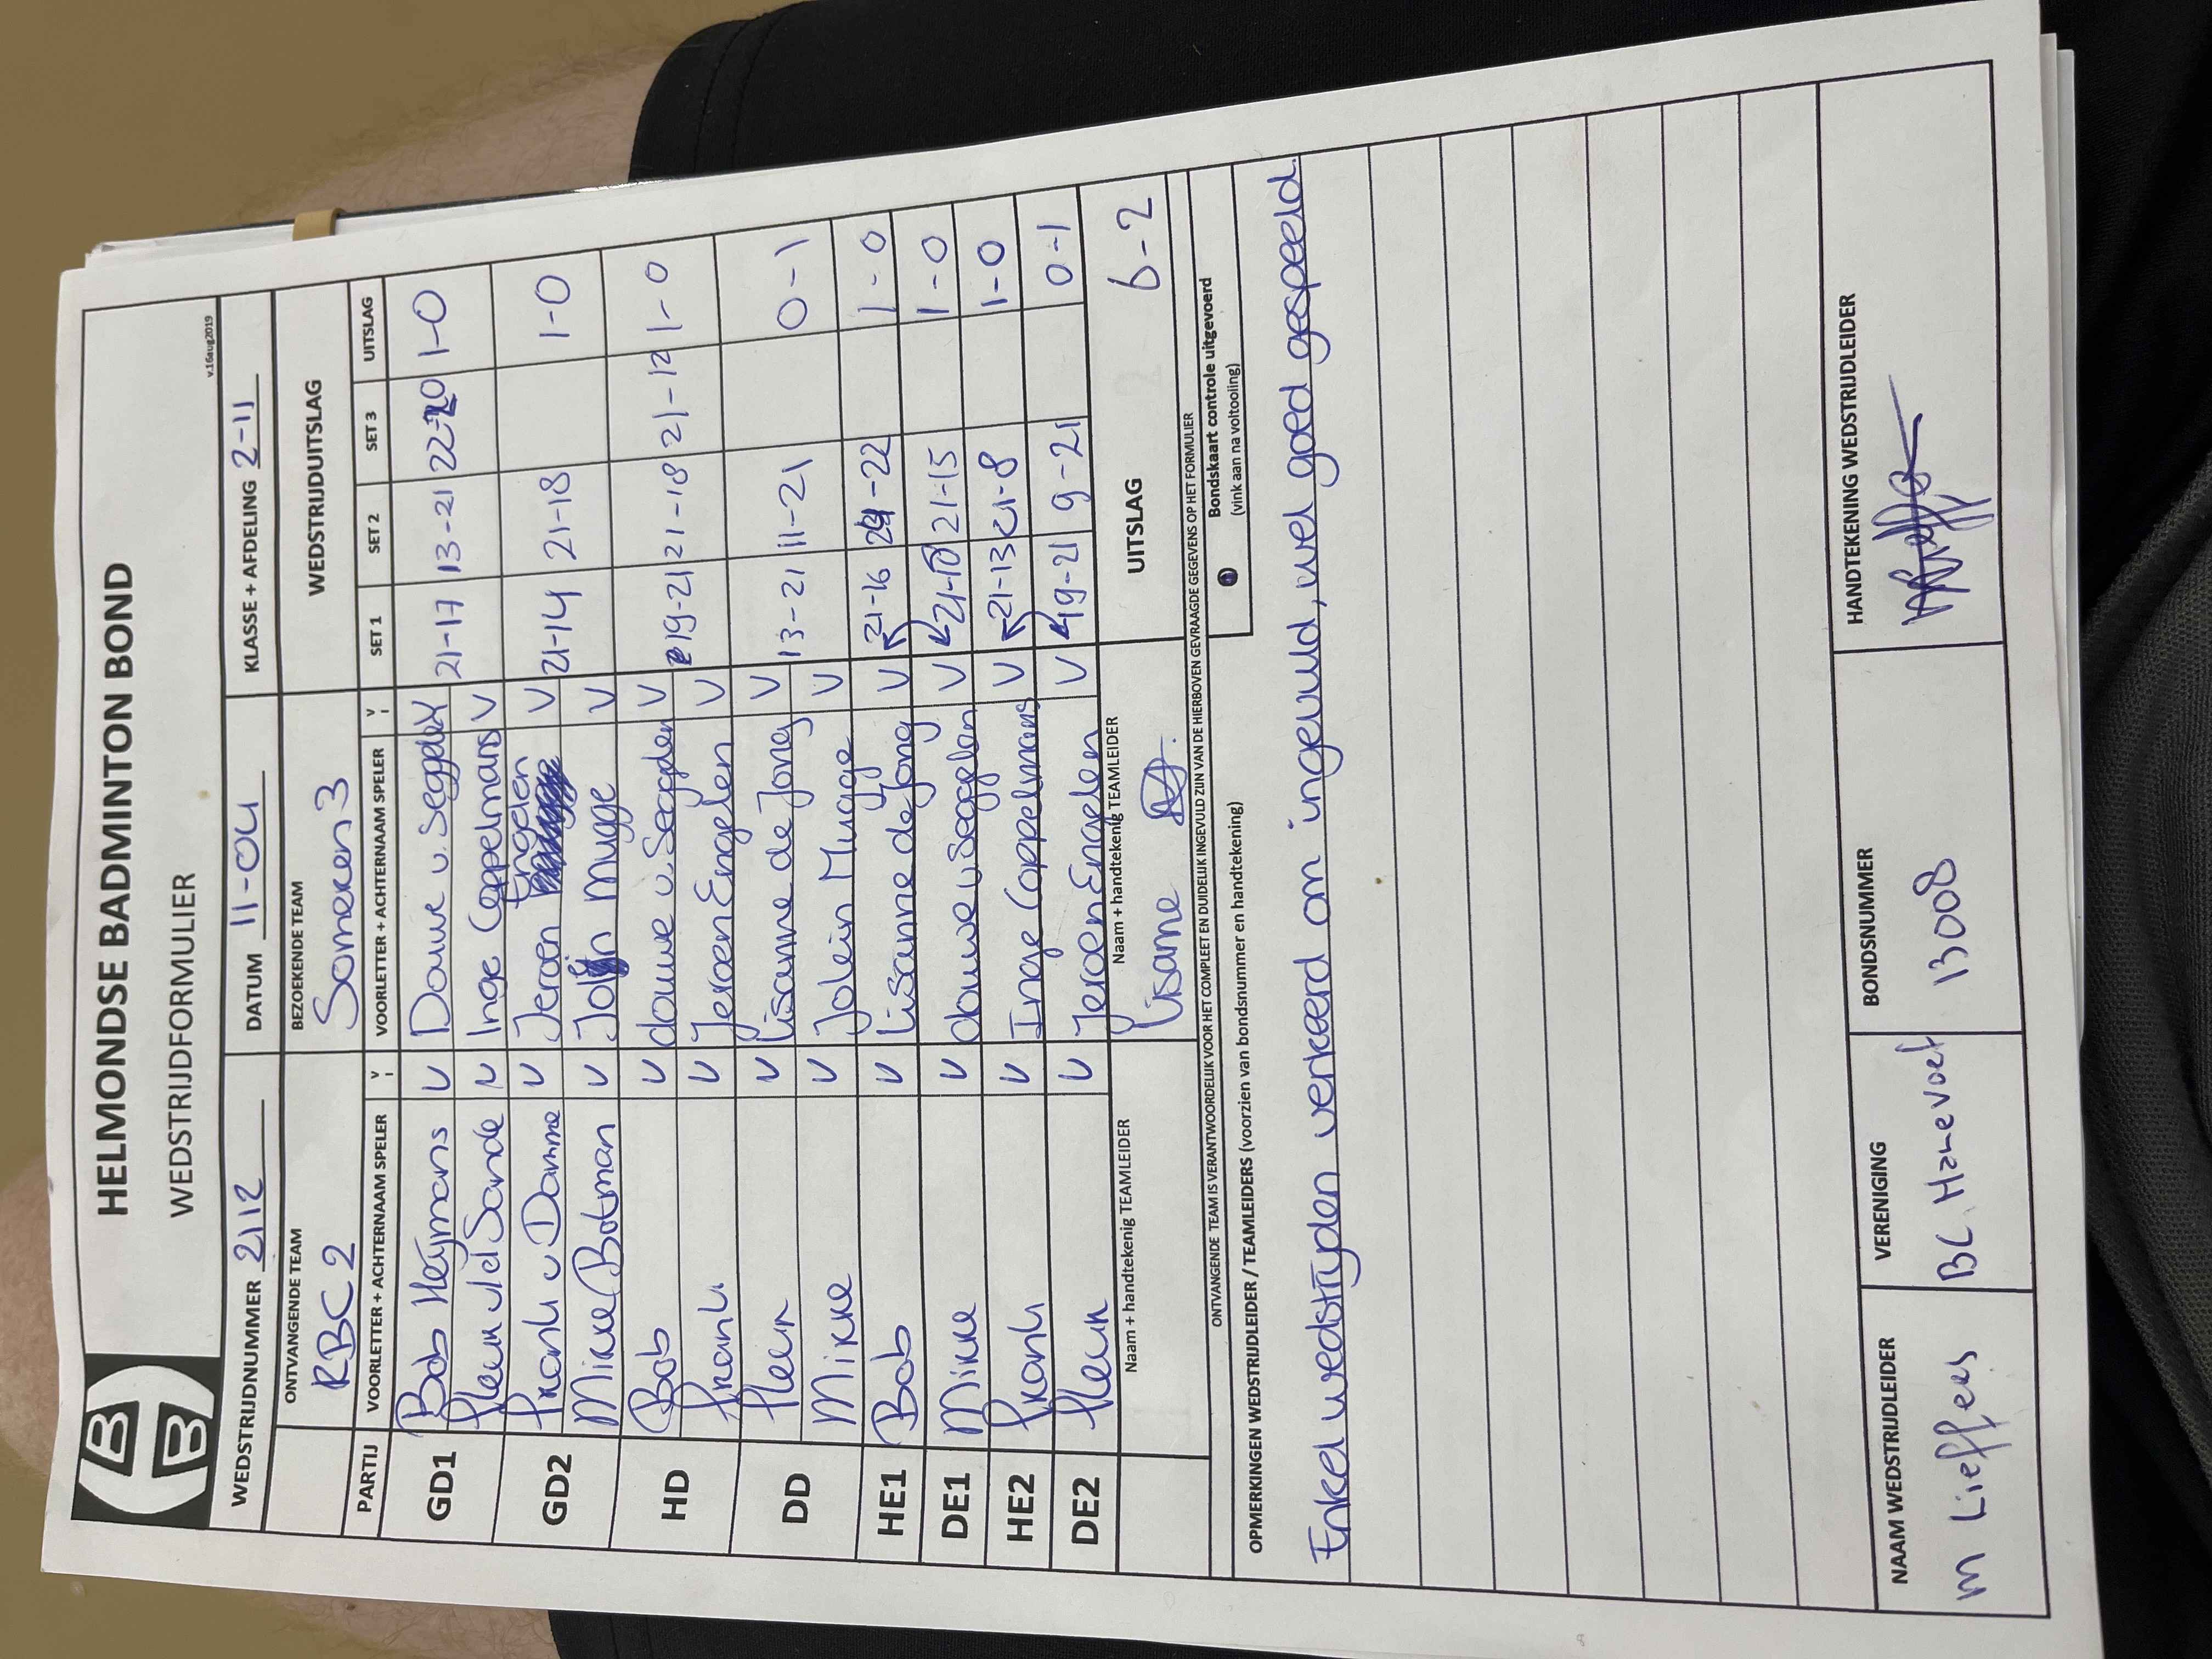 HELMONDSE BADMINTON BOND
WEDSTRIJDFORMULIER
v.16aug2019
WEDSTRIJDNUMMER 2112 DATUM 11-04 KLASSE + AFDELING 2-11
ONTVANGENDE TEAM BEZOEKENDE TEAM WEDSTRIJDUITSLAG
RBC 2 Someren 3
PARTIJ VOORLETTER + ACHTERNAAM SPELER V VOORLETTER + ACHTERNAAM SPELER V SET 1 SET 2 SET 3 UITSLAG
GD1 Bob Heijmans V Douwe v. Seggelen V 21-17 13-21 22-20 1-0
Pleun v/d Sande V Inge Coppelmans V
GD2 Frank v Damme V Jeroen Engelen V 21-14 21-18 1-0
Mikke Botman V Jolein Mugge V
HD Bob V douwe v. Seggelen V 19-21 21-18 21-12 1-0
Frank V Jeroen Engelen V
DD Pleun V Lisanne de Jong V 13-21 11-21 0-1
Mikke V Jolein Mugge V
HE1 Bob V Lisanne de Jong V 21-16 24-22 1-0
DE1 Mikke V douwe v Seggelen V 21-10 21-15 1-0
HE2 Frank V Inge Coppelmans V 21-13 21-8 1-0
DE2 Pleun V Jeroen Engelen V 19-21 9-21 0-1
Naam + handtekenig TEAMLEIDER Naam + handtekenig TEAMLEIDER UITSLAG 6-2
Lisanne
ONTVANGENDE TEAM IS VERANTWOORDELIJK VOOR HET COMPLEET EN DUIDELIJK INGEVULD ZIJN VAN DE HIERBOVEN GEVRAAGDE GEGEVENS OP HET FORMULIER
OPMERKINGEN WEDSTRIJDLEIDER / TEAMLEIDERS (voorzien van bondsnummer en handtekening)
Bondskaart controle uitgevoerd
(vink aan na voltooling)
Enkel wedstrijden verkeerd om ingevuld, wel goed gespeeld.
NAAM WEDSTRIJDLEIDER VERENIGING BONDSNUMMER HANDTEKENING WEDSTRIJDLEIDER
M Lieffees BC. Hanevoet 13008